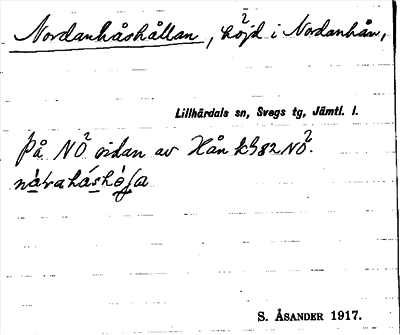 Nordanhåshållan, höjd i Nordanhån,
Lillhärdals sn, Svegs tg, Jämtl. l.
På NÖ sidan av Hån k 982 NÖ.
S. ÅSANDER 1917.